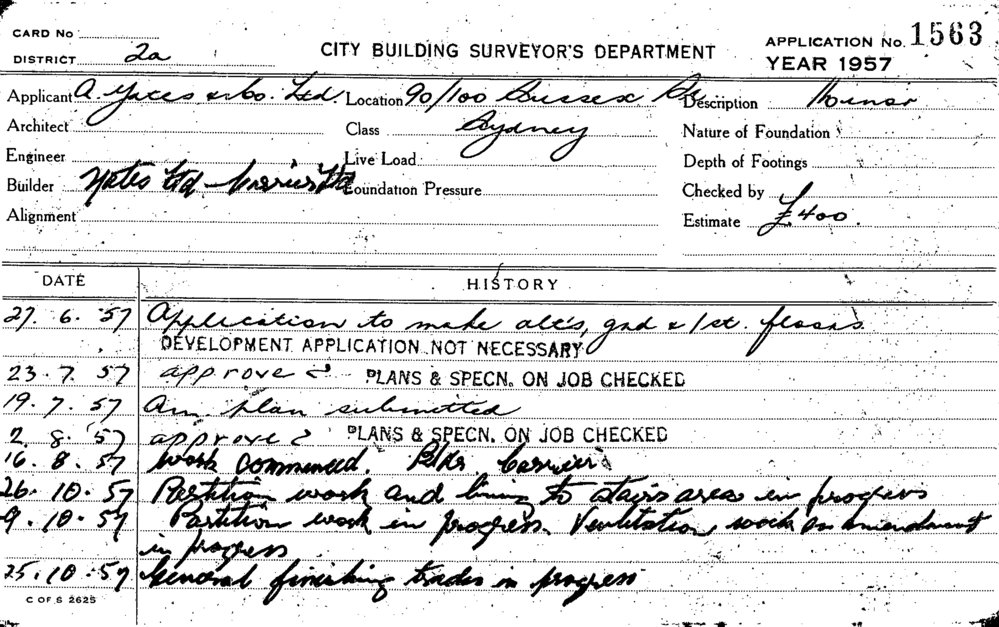 CARD No
DISTRICT 2a
CITY BUILDING SURVEYOR'S DEPARTMENT
APPLICATION No. 1563
YEAR 1957
Applicant A. Yates & Co. Ltd. Location 90/100 Sussex St Description Minor
Architect Class Sydney Nature of Foundation
Engineer Live Load Depth of Footings
Builder Yates Ltd Foundation Pressure Checked by
Alignment Estimate £400.
DATE HISTORY
27. 6. 57 Application to make alt's, gnd & 1st. floors
DEVELOPMENT APPLICATION NOT NECESSARY
23. 7. 57 approved PLANS & SPECN. ON JOB CHECKED
19. 7. 57 Am. plan submitted
2. 8. 57 approved PLANS & SPECN. ON JOB CHECKED
16. 8. 57 Work commenced. Bldr.
26. 10. 57 Partition work and lining to stairs area in progress
9. 10. 57 Partition work in progress. Ventilation work on amendment
in progress
25. 10. 57 General finishing trades in progress
C OF S 2625